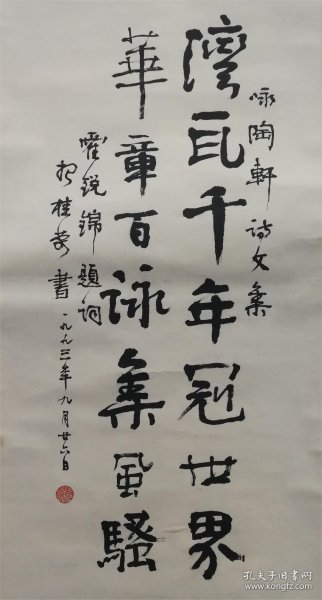 咏陶軒诗文集
灣瓦千年冠世界
華章百詠集風騷
锐錦題词
桂芳書一九九三年九月廿六日
孔夫子旧书网
www.kongfz.com